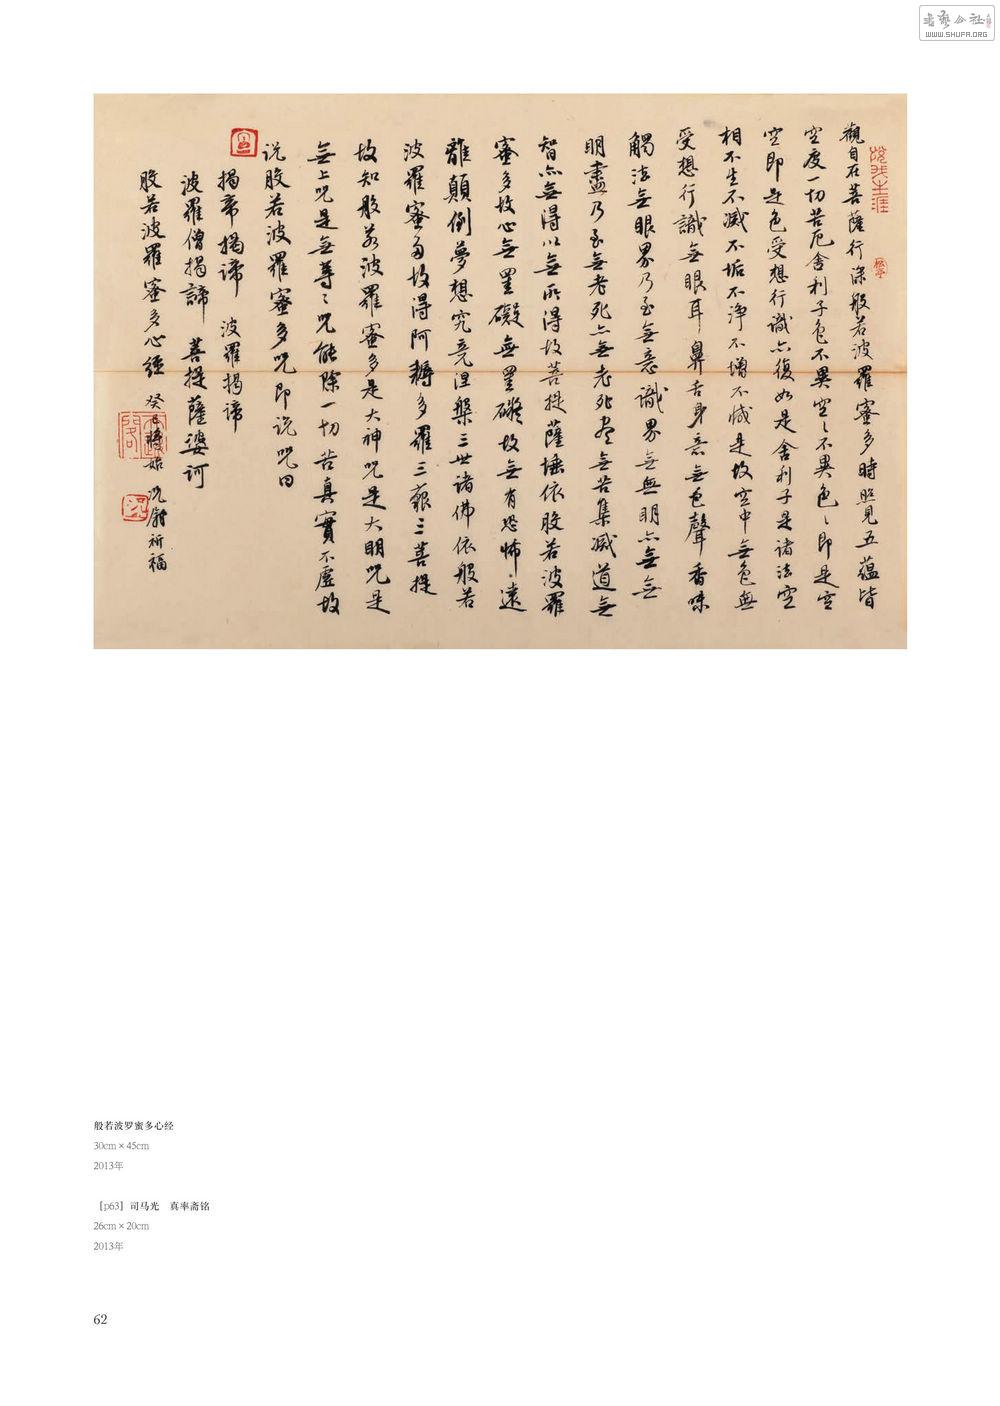 觀自在菩薩行深般若波羅蜜多時照見五蘊皆
空度一切苦厄舍利子色不異空〻不異色〻即是空
空即是色受想行識亦復如是舍利子是諸法空
相不生不滅不垢不淨不增不減是故空中無色無
受想行識無眼耳鼻舌身意無色聲香味
觸法無眼界乃至無意識界無無明亦無無
明盡乃至無老死亦無老死盡無苦集滅道無
智亦無得以無所得故菩提薩埵依般若波羅
蜜多故心無罣礙無罣礙故無有恐怖遠
離顛倒夢想究竟涅槃三世諸佛依般若
波羅蜜多故得阿耨多羅三藐三菩提
故知般若波羅蜜多是大神咒是大明咒是
無上咒是無等〻咒能除一切苦真實不虛故
说般若波羅蜜多咒即说咒曰
揭帝揭諦 波羅揭諦
波羅僧揭諦 菩提薩婆訶
般若波羅蜜多心經 癸巳 祈福
WWW.SHUFA.ORG
般若波罗蜜多心经
30cm × 45cm
2013年
［p63］司马光 真率斋铭
26cm × 20cm
2013年
62